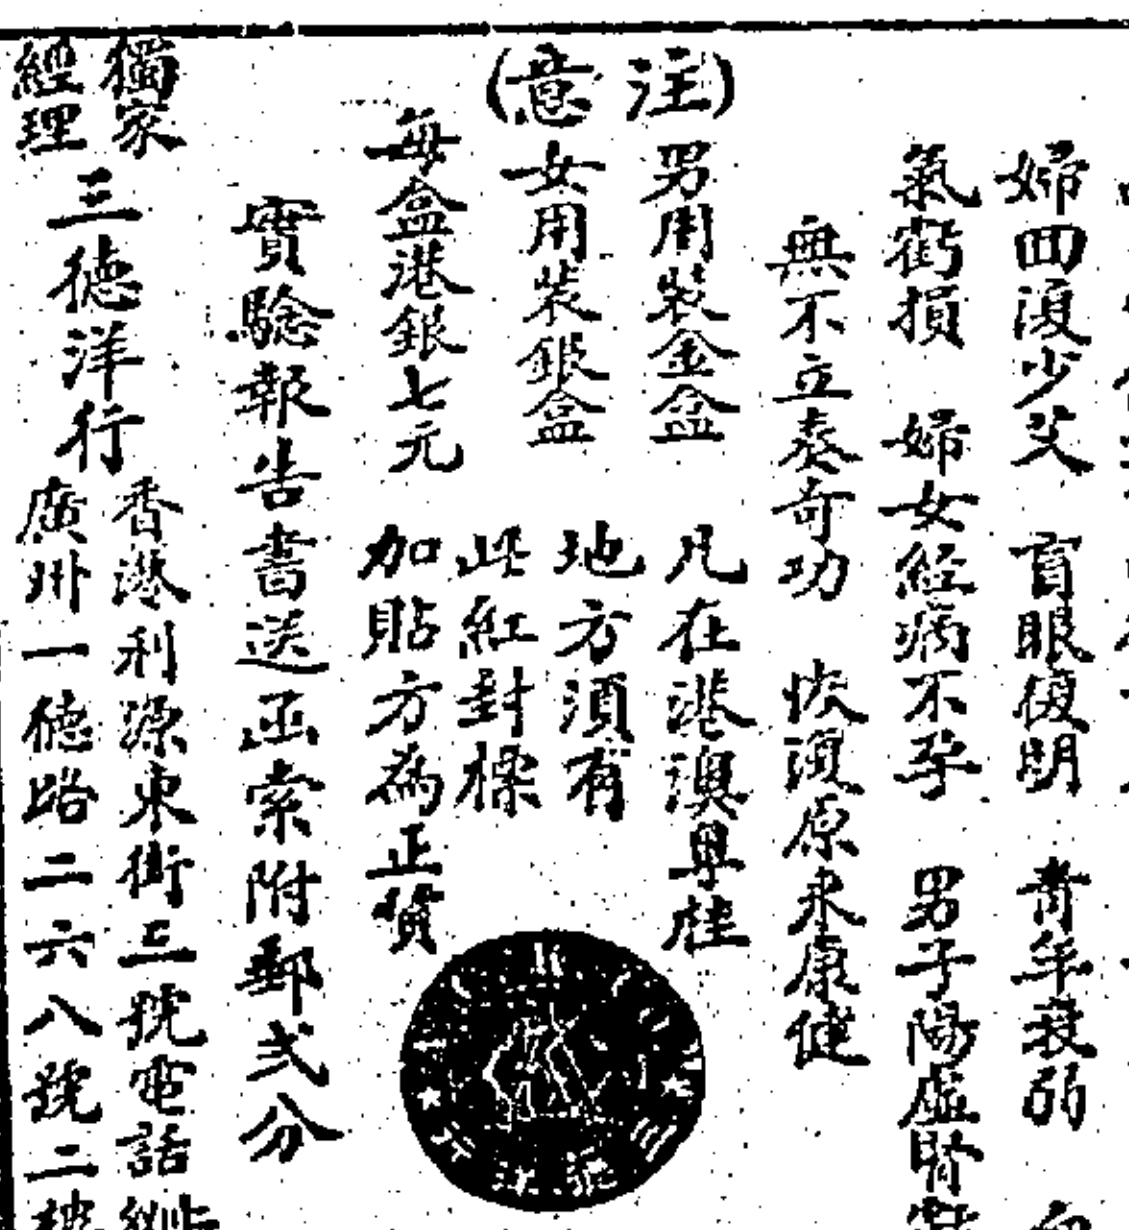 婦回復少艾 盲眼復明 青年衰弱
氣虧損 婦女經病不孕 男子陽虛腎
無不立奏奇功 恢復原來康健
(注意)
男用裝金盒
女用裝銀盒
每盒港銀七元
凡在港澳粤桂
地方須有
此紅封標
加貼方為正貨
實驗報告書送函索附郵弍分
獨家經理
三德洋行
香港利源東街三號電話
廣州一德路二六八號二樓